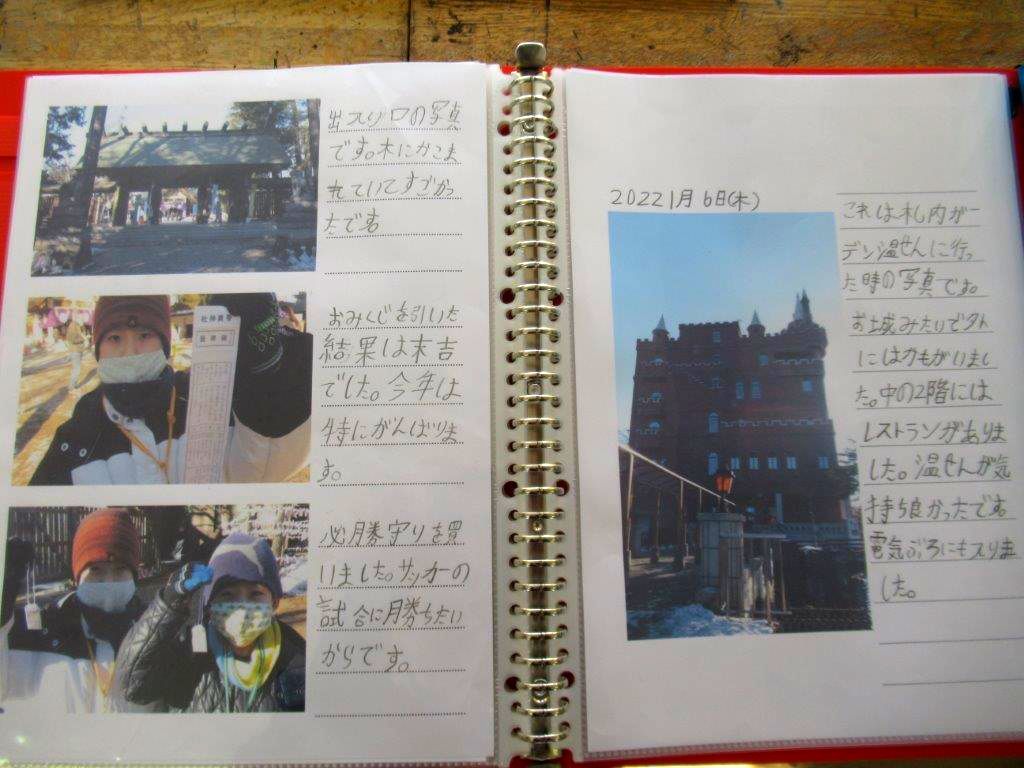 出入り口の写真
です。木にかこま
れていてすごかっ
たです
おみくじを引いた
結果は末吉
でした。今年は
特にがんばりま
す。
必勝守りを買
いました。サッカーの
試合に勝ちたい
からです。
2022 1月6日(木)
これは札内ガー
デン温せんに行っ
た時の写真です。
お城みたいで外
にはかもがいまし
た。中の2階には
レストランがありま
した。温せんが気
持ち良かったです
電気ぶろにも入りま
した。